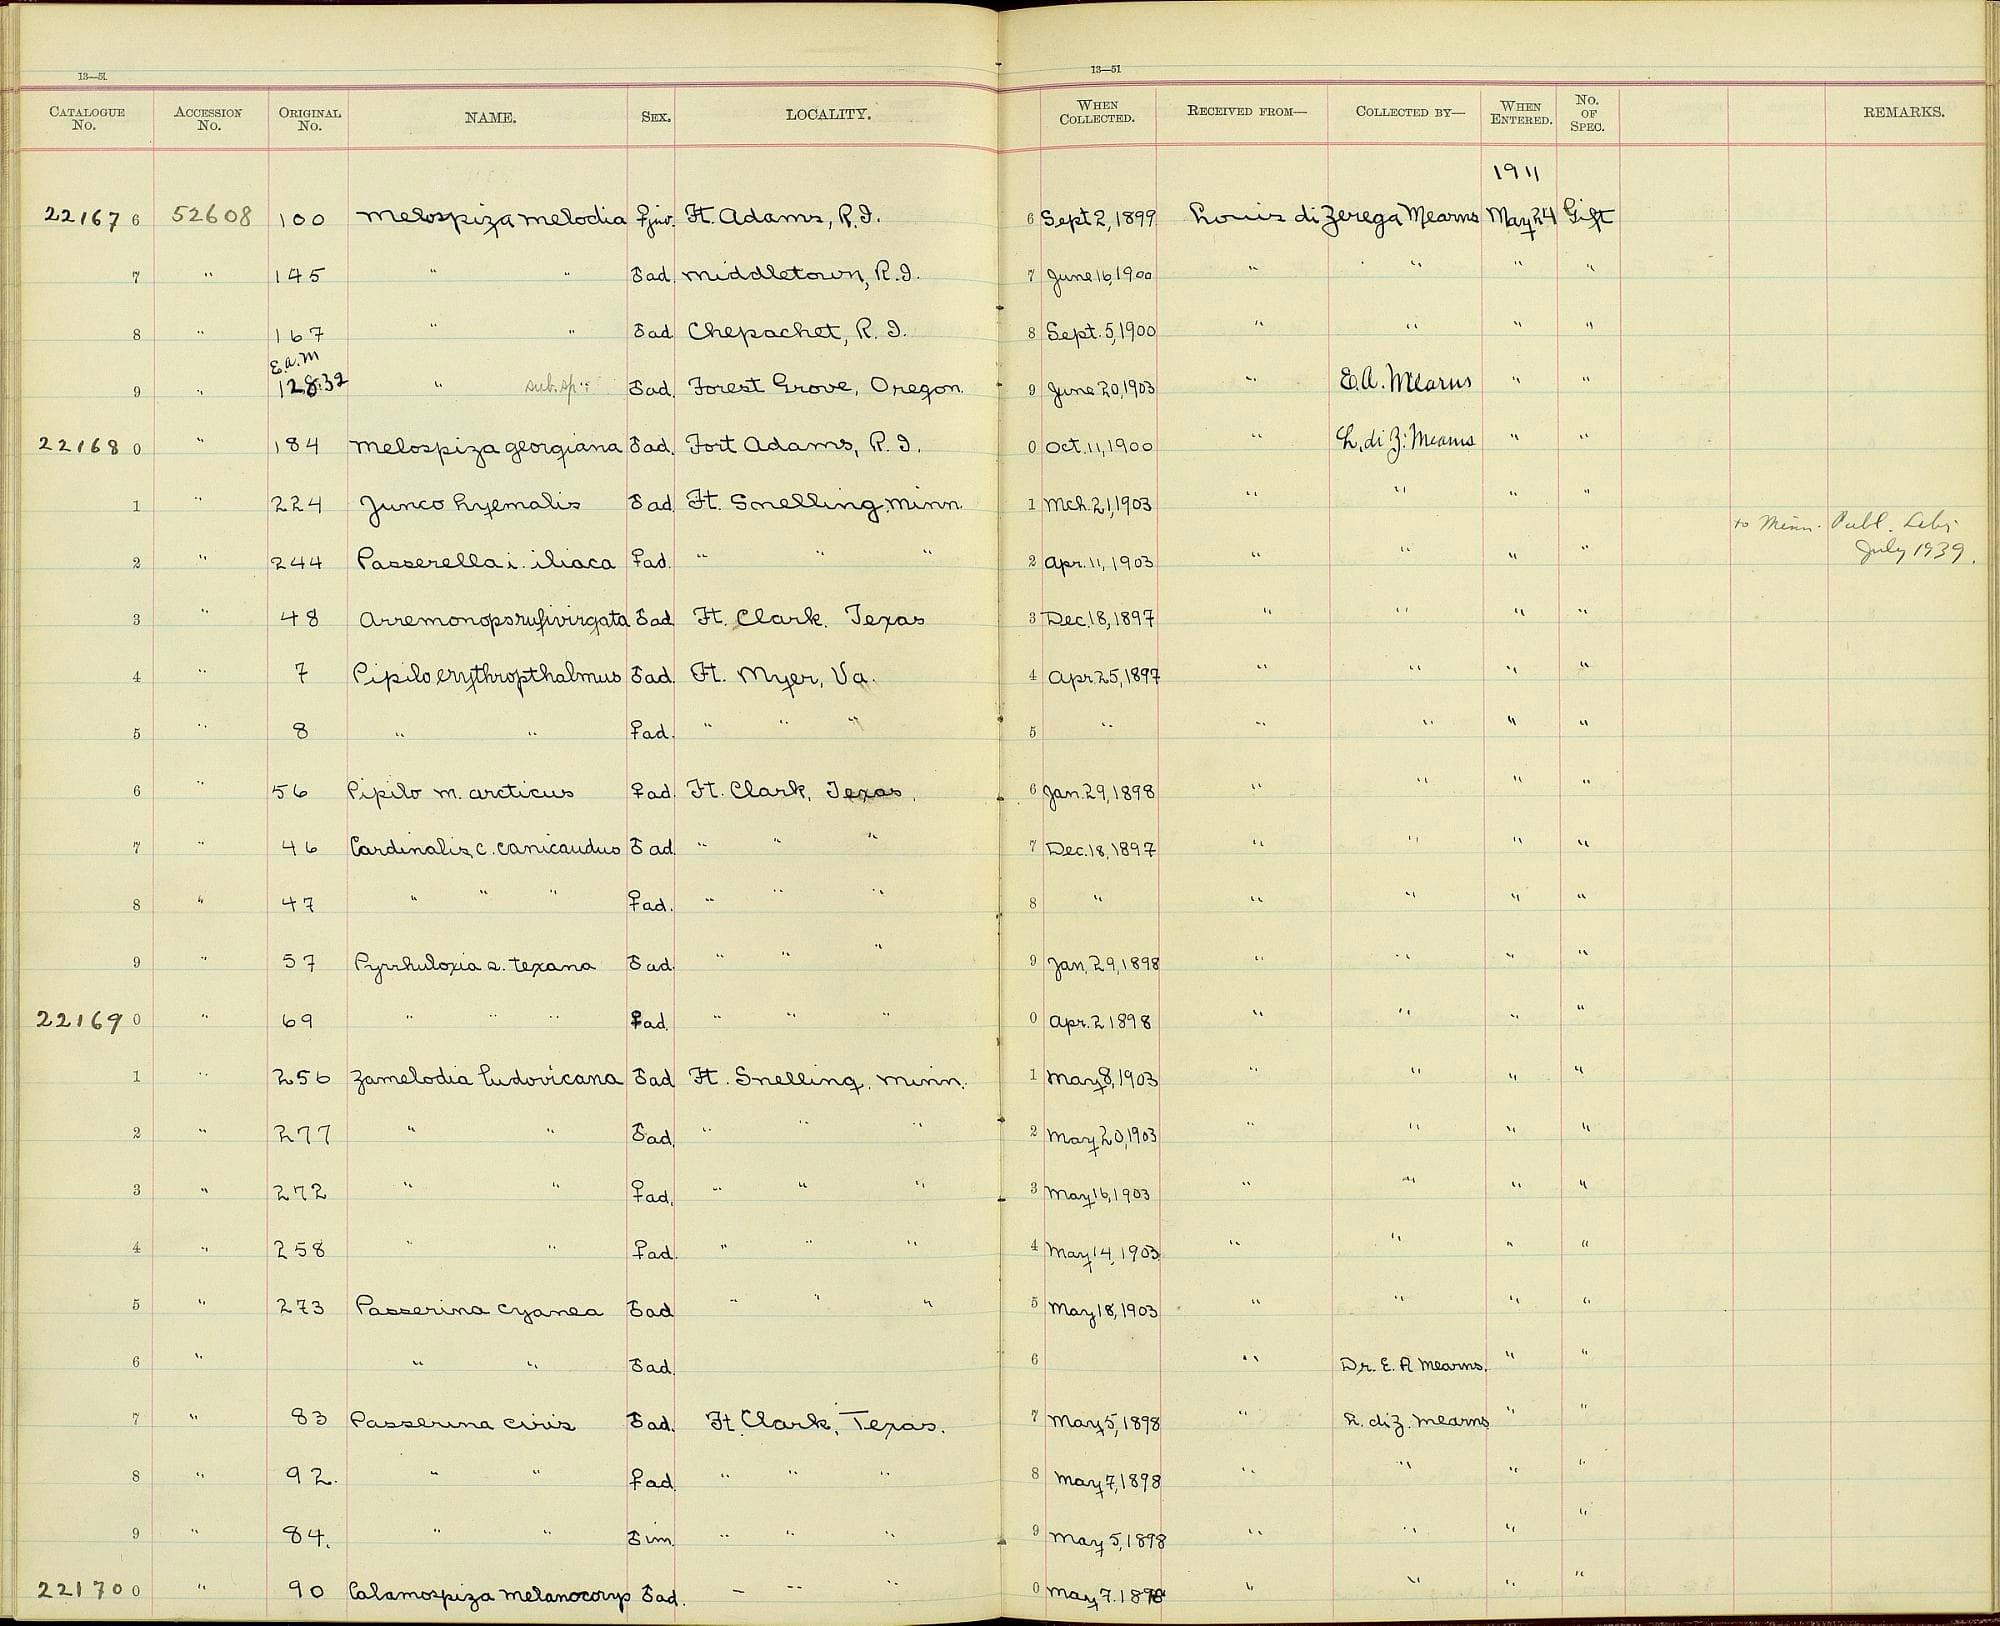 13—51. 13—51
CATALOGUE No. ACCESSION No. ORIGINAL No. NAME. SEX. LOCALITY. WHEN COLLECTED. RECEIVED FROM— COLLECTED BY— WHEN ENTERED. NO. OF SPEC. REMARKS.
1911
22167 6 52608 100 Melospiza melodia ♀juv. Ft. Adams, R.I. 6 Sept 2, 1899 Louis di Zerega Mearns May 24 Gift
7 " 145 " " ♂ad. Middletown, R.I. 7 June 16, 1900 " " " "
8 " 167 " " ♂ad Chepachet, R.I. 8 Sept. 5, 1900 " " " "
E.A.M
9 " 12832 " sub.sp. " ♂ad. Forest Grove, Oregon. 9 June 20, 1903 " E.A. Mearns " "
22168 0 " 184 Melospiza georgiana ♂ad. Fort Adams, R.I. 0 Oct. 11, 1900 " L. di Z. Mearns " "
1 " 224 Junco hyemalis ♂ad. Ft. Snelling, Minn. 1 Mch. 21, 1903 " " " "
to Minn. Publ. Lib;
2 " 244 Passerella i. iliaca ♀ad. " " " 2 Apr. 11, 1903 " " " " July 1939.
3 " 48 Arremonops rufivirgata ♂ad Ft. Clark. Texas 3 Dec. 18, 1897 " " " "
4 " 7 Pipilo erythropthalmus ♂ad. Ft. Myer, Va. 4 Apr. 25, 1897 " " " "
5 " 8 " " ♀ad. " " " 5 " " " " "
6 " 56 Pipilo m. arcticus ♀ad. Ft. Clark, Texas. 6 Jan. 29, 1898 " " " "
7 " 46 Cardinalis c. canicaudus ♂ad. " " " 7 Dec. 18, 1897 " " " "
8 " 47 " " " ♀ad. " " " 8 " " " " "
9 " 57 Pyrrhuloxia s. texana ♂ad. " " " 9 Jan. 29, 1898 " " " "
22169 0 " 69 " " " ♀ad. " " " 0 Apr. 2 1898 " " " "
1 " 256 Zamelodia ludovicana ♂ad Ft. Snelling, Minn. 1 May 8, 1903 " " " "
2 " 277 " " ♂ad. " " " 2 May 20, 1903 " " " "
3 " 272 " " ♀ad. " " " 3 May 16, 1903 " " " "
4 " 258 " " ♀ad. " " " 4 May 14, 1903 " " " "
5 " 273 Passerina cyanea ♂ad " " " 5 May 18, 1903 " " " "
6 " " " ♂ad. 6 " Dr. E. A Mearns. " "
7 " 83 Passerina ciris ♂ad. Ft. Clark, Texas. 7 May 5, 1898 " L. di Z. Mearns " "
8 " 92. " " ♀ad " " " 8 May 7, 1898 " " " "
9 " 84. " " ♂im. " " " 9 May 5, 1898 " " " "
22170 0 " 90 Calamospiza melanocorys ♂ad. " " " 0 May 7. 1898 " " " "